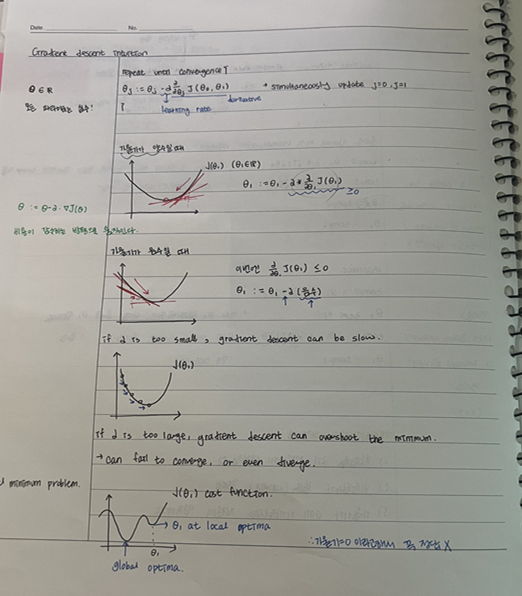 Date
No.
Gradient descent intuition
repeat until convergence {
θ ∈ ℝ
θj := θj - α ∂/∂θj J(θ₀, θ₁) * simultaneously update j=0, j=1
derivative
}
learning rate
기울기가 양수일 때
J(θ₁) (θ₁∈ℝ)
θ₁ := θ₁ - α * ∂/∂θ₁ J(θ₁)
≥0
θ := θ - α · ∇J(θ)
기울기가 음수일 때
이번엔 ∂/∂θ₁ J(θ₁) ≤ 0
θ₁ := θ₁ - α (음수)
if α is too small, gradient descent can be slow.
J(θ₁)
if α is too large, gradient descent can overshoot the minimum.
→ can fail to converge, or even diverge.
minimum problem.
J(θ₁) cost function.
→ θ₁ at local optima
θ₁
∴ 기울기=0 이라고해서 꼭 정답 X
global optima.